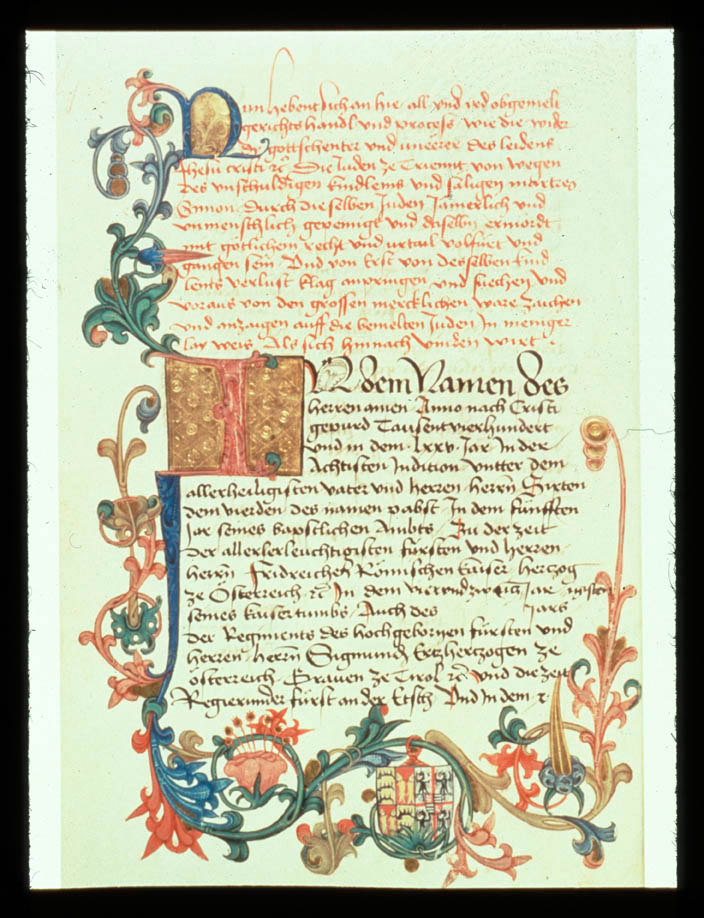 Nun hebent sich an hie all vnd ird obgemelt
gerichts handl vnd process wie die wider
die gottschenter vnd vneerer des leidens
Jhesu cristi rc Die Juden ze Trienntt von wegen
des vnschuldigen kindleins vnd säligen martrers
Simon durch die selben Juden Jämerlich vnd
vnmenschlich gepeinigt vnd daselbn ermördt
mit götlichem recht vnd vrtail volfürt vnd
gangen sein Vnd von erst von desselben kind
leins verlust klag anpringen vnd suechen vnd
voraus von den grossen mercklichen ware zaichen
vnd anzaigen auff die bemelten Juden In meniger
lay weis Als sich hinnach vinden wirt
In dem Namen des
herren amen Anno nach Cristi
gepurd Tausent vierhundert
vnd in dem lxxv Jar In der
Achtisten Indition vntter dem
allerheiligisten vater vnd herren herrn Sixten
dem vierden des namen pabst In dem fünfften
Jar seines bapstlichen Ambts Zu der zeit
der allerleuchtigisten fürsten vnd herren
herrn Fridreichen Römischen kaiser hertzog
ze Österreich rc In dem vierundzwainczigisten Jar
seines kaisertumbs Auch des Jars
der Regiments des hochgebornen fürsten vnd
herren herrn Sigmunden Ertzhertzogen ze
österreich Grauen ze Tirol rc vnd die zeit
Regierunder fürst an der Etsch Vnd In dem rc